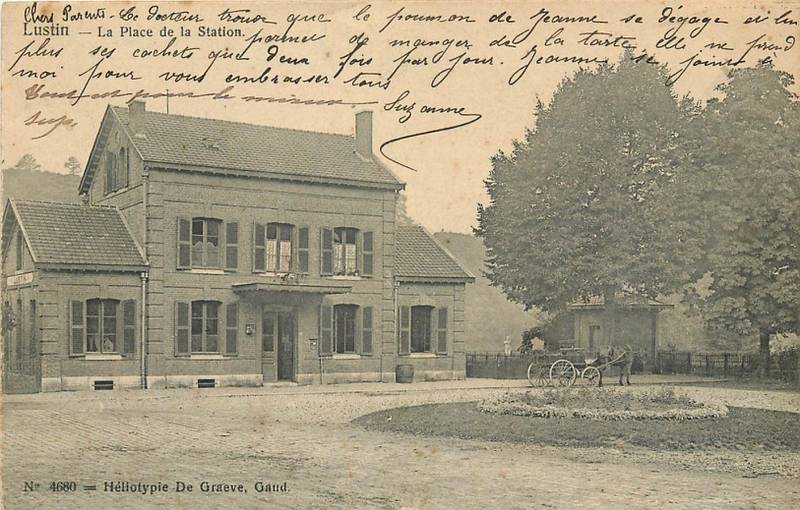 Chers Parents - Le docteur trouve que le poumon de Jeanne se dégage et lui
Lustin - La Place de la Station.
permet de manger de la tarte elle ne prend
plus ses cachets que deux fois par jour. Jeanne se joint à
moi pour vous embrasser tous
Suzanne
tout est pour le mieux
Nº 4680 = Héliotypie De Graeve, Gand.